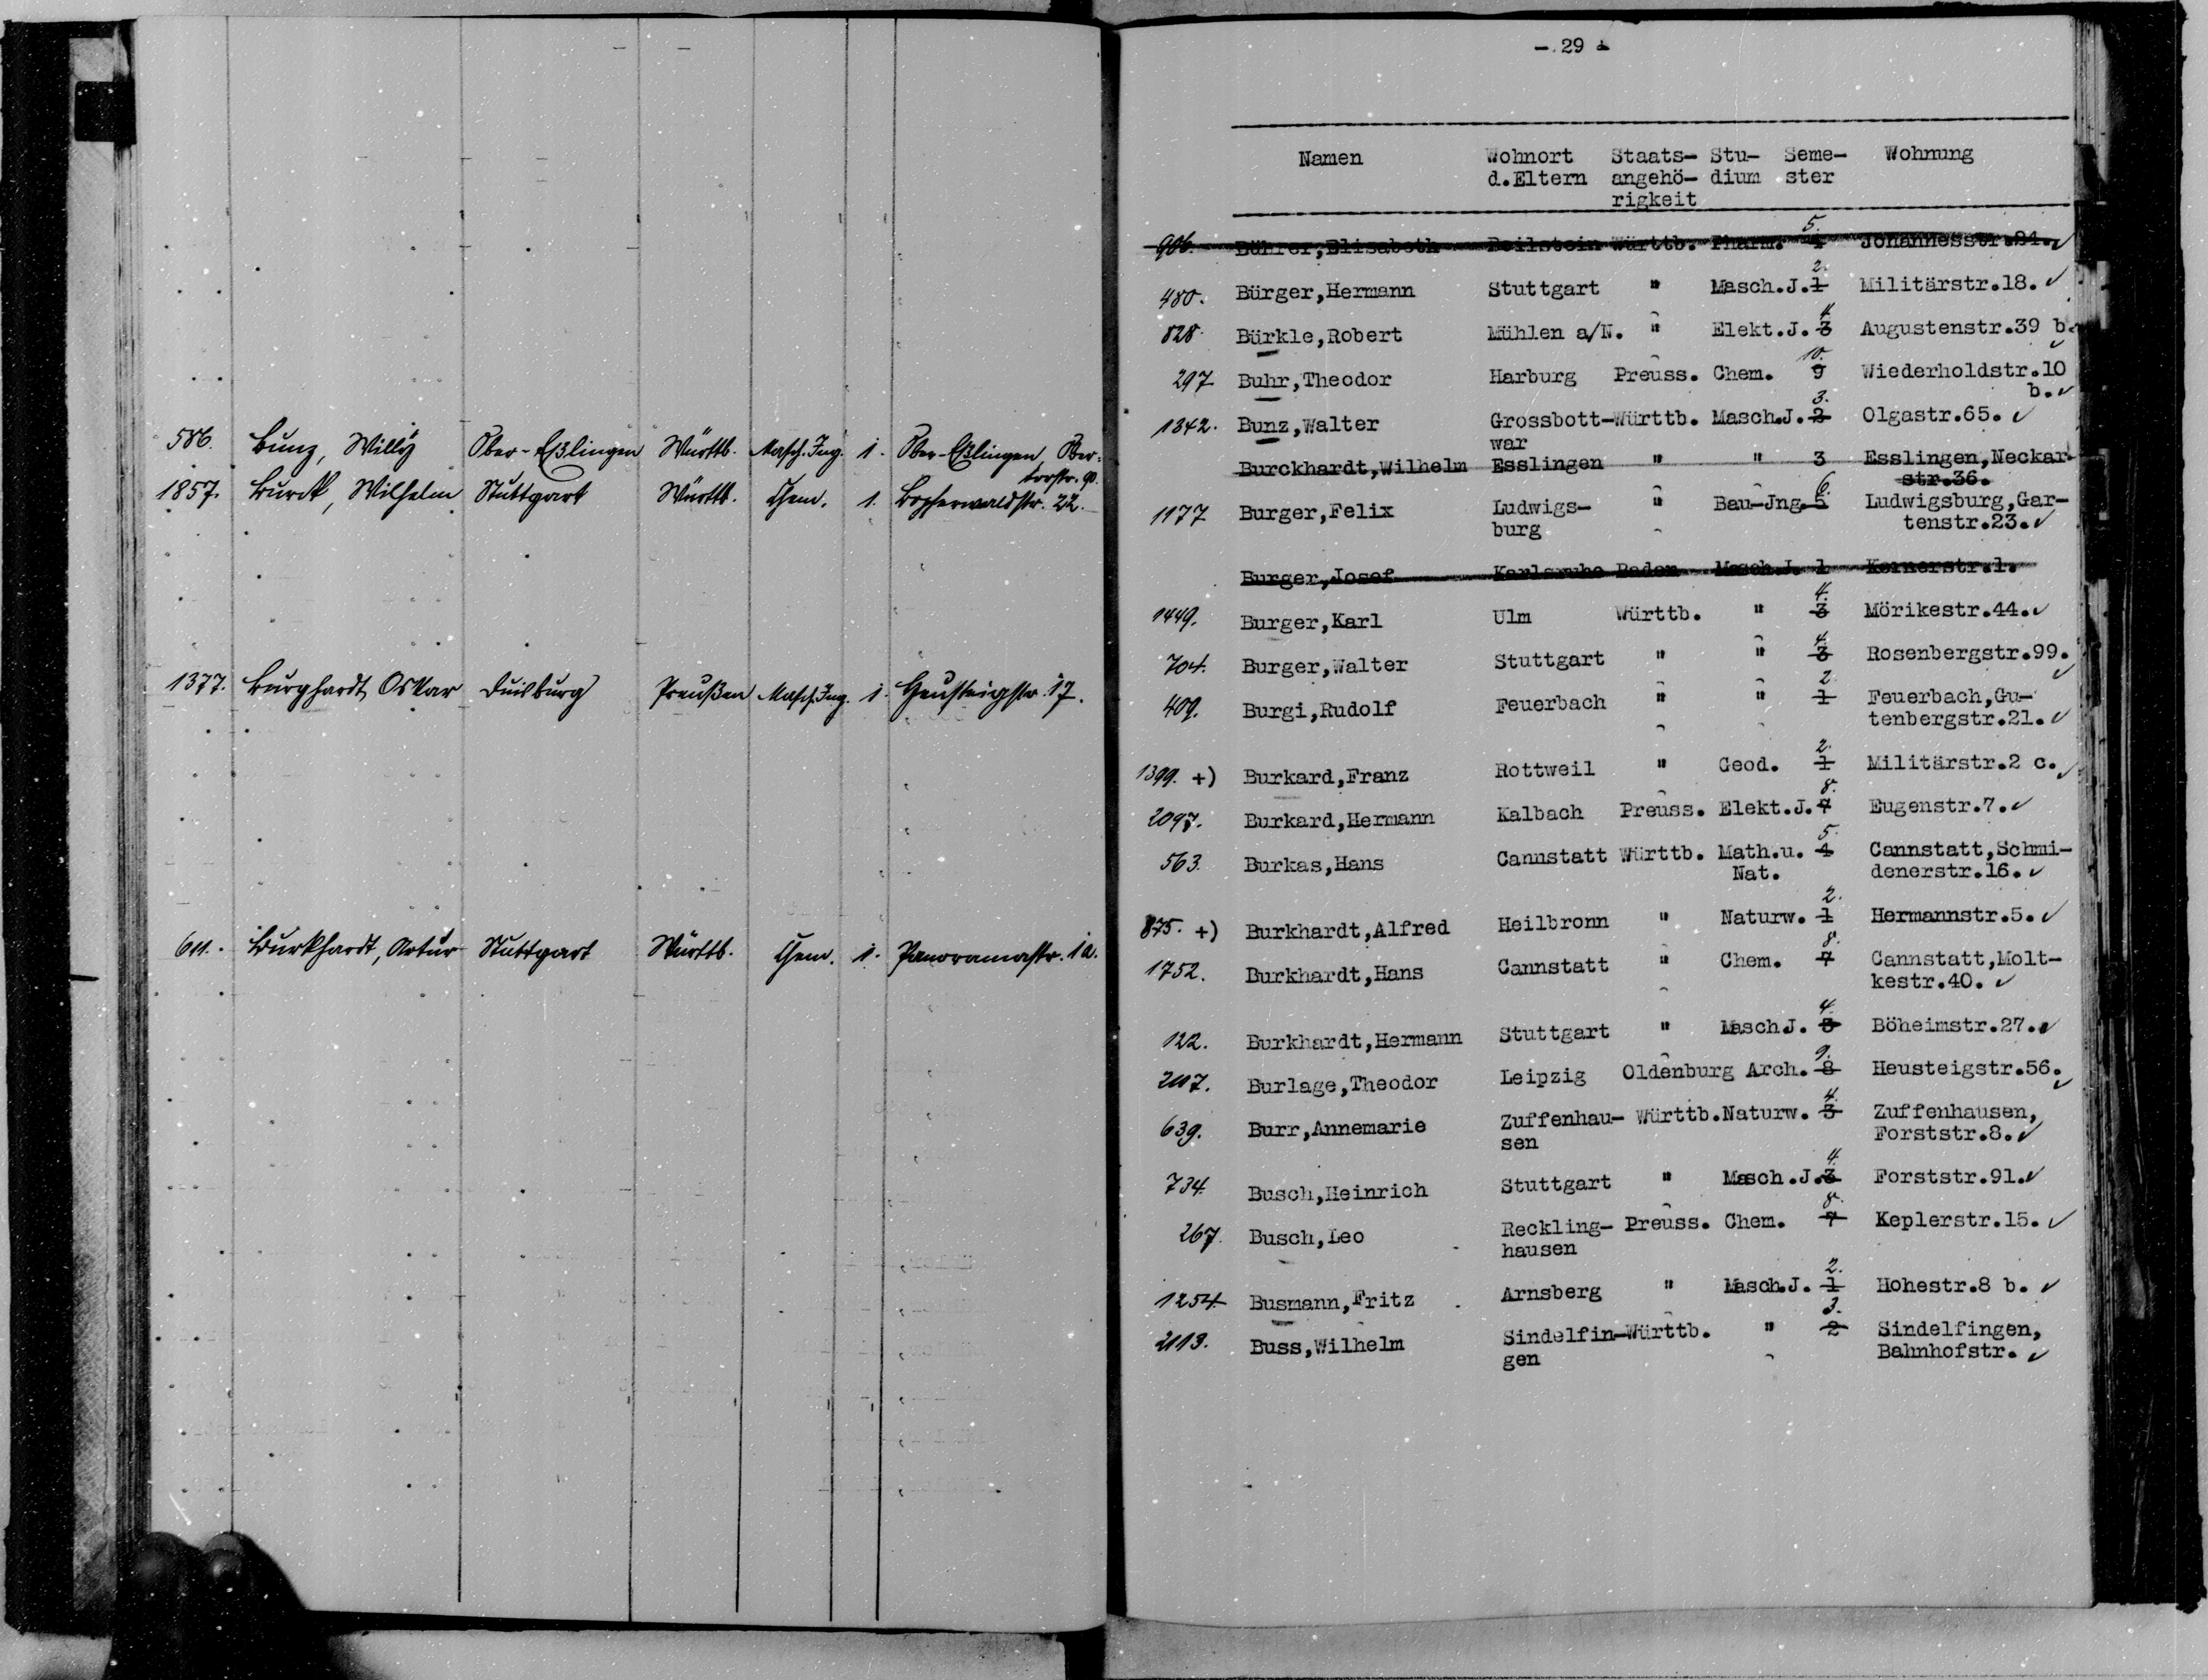 586. Bunz, Willy Ober-Eßlingen Württb. Masch. Ing. 1. Ober-Eßlingen, Ober-
torstr.
1857. Burck, Wilhelm Stuttgart Württb. Chem. 1. Bopserwaldstr. 22.
1377. Burghardt, Oskar Duisburg Preußen Masch. Ing. 1. Heusteigstr. 17.
611. Burkhardt, Artur Stuttgart Württb. Chem. 1. Panoramastr. 1a.
- 29 -
Namen Wohnort Staats- Stu- Seme- Wohnung
d.Eltern angehö- dium ster
rigkeit
5.
906. Bührer,Elisabeth Beilstein Württb. Pharm. 4 Johannesstr.84.
2.
480. Bürger,Hermann Stuttgart " Masch.J.1 Militärstr.18.
4.
828. Bürkle,Robert Mühlen a/N. " Elekt.J. 3 Augustenstr.39 b.
10.
297 Buhr,Theodor Harburg Preuss. Chem. 9 Wiederholdstr.10
b.
3.
1342. Bunz,Walter Grossbott-Württb. Masch.J. 2 Olgastr.65.
war
Burckhardt,Wilhelm Esslingen " " 3 Esslingen,Neckar-
str.36.
6.
1177 Burger,Felix Ludwigs- " Bau-Jng.5 Ludwigsburg,Gar-
burg tenstr.23.
Burger,Josef Karlsruhe Baden Masch.J. 1 Kernerstr.1.
4.
1449. Burger,Karl Ulm Württb. " 3 Mörikestr.44.
4.
704. Burger,Walter Stuttgart " " 3 Rosenbergstr.99.
2.
409. Burgi,Rudolf Feuerbach " " 1 Feuerbach,Gu-
tenbergstr.21.
2.
1399. +) Burkard,Franz Rottweil " Geod. 1 Militärstr.2 c.
8.
2097. Burkard,Hermann Kalbach Preuss. Elekt.J.7 Eugenstr.7.
5.
563. Burkas,Hans Cannstatt Württb. Math.u. 4 Cannstatt,Schmi-
Nat. denerstr.16.
2.
875. +) Burkhardt,Alfred Heilbronn " Naturw. 1 Hermannstr.5.
8.
1752. Burkhardt,Hans Cannstatt " Chem. 7 Cannstatt,Molt-
kestr.40.
4.
122. Burkhardt,Hermann Stuttgart " Masch.J. 3 Böheimstr.27.
9.
2117. Burlage,Theodor Leipzig Oldenburg Arch. 8 Heusteigstr.56.
4.
639. Burr,Annemarie Zuffenhau- Württb.Naturw. 3 Zuffenhausen,
sen Forststr.8.
4
734. Busch,Heinrich Stuttgart " Masch.J.3 Forststr.91.
8.
267. Busch,Leo Reckling- Preuss. Chem. 7 Keplerstr.15.
hausen
2.
1254. Busmann,Fritz Arnsberg " Masch.J. 1 Hohestr.8 b.
3.
2113. Buss,Wilhelm Sindelfin-Württb. " 2 Sindelfingen,
gen Bahnhofstr.